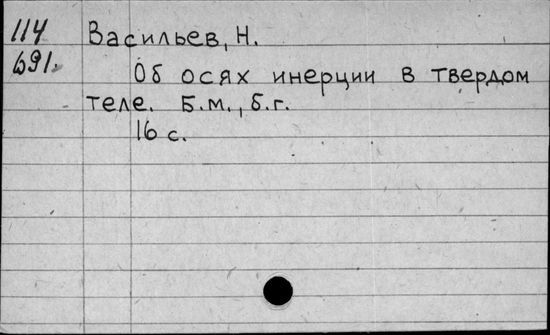 114 Васильев, Н.
691. Об осях инерции в твердом
теле. Б.м., б.г.
16 с.